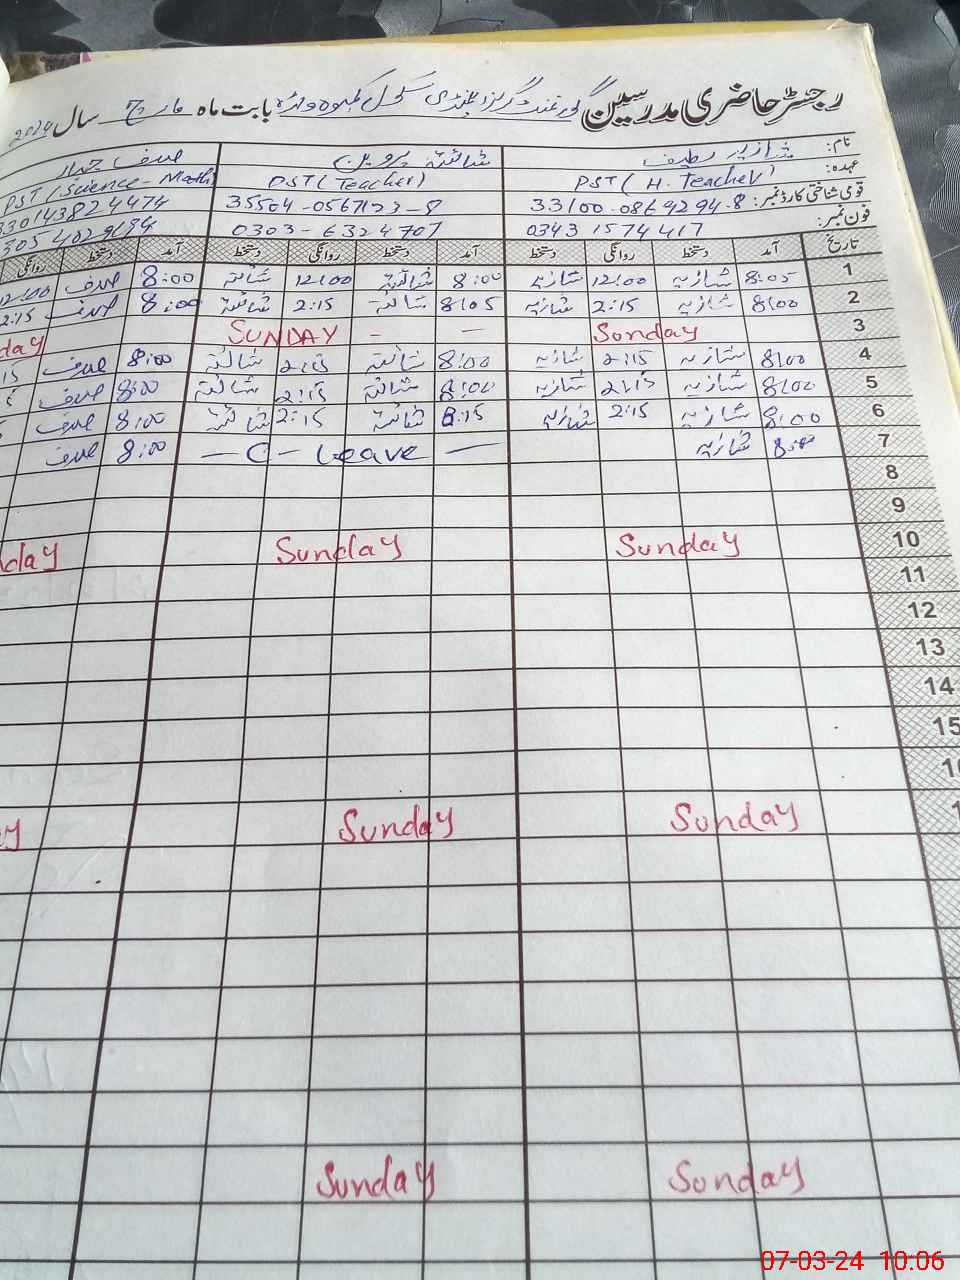 رجسٹر حاضری مدرسین گورنمنٹ گرلز ایلیمنٹری سکول بابت ماہ مارچ سال 2024
نام: شازیہ لطیف شائستہ پروین صدف
عہدہ: PST (H. Teacher) PST (Teacher) PST (Science - Math)
قومی شناختی کارڈ نمبر: 33100-0869294-8 35504-0567123-8 330143824474
فون نمبر: 0343 1574417 0303-6324707
تاریخ آمد دستخط روانگی دستخط آمد دستخط روانگی دستخط آمد دستخط روانگی
1 8:05 شازیہ 12:00 شازیہ 8:00 شائستہ 12:00 شائستہ 8:00 صدف 12:00
2 8:00 شازیہ 2:15 شازیہ 8:05 شائستہ 2:15 شائستہ 8:00 صدف 2:15
3 Sunday SUNDAY - - day
4 8:00 شازیہ 2:15 شازیہ 8:00 شائستہ 2:15 شائستہ 8:00 صدف 15
5 8:00 شازیہ 2:15 شازیہ 8:00 شائستہ 2:15 شائستہ 8:00 صدف
6 8:00 شازیہ 2:15 شازیہ 8:15 شائستہ 2:15 شائستہ 8:00 صدف
7 8:00 شازیہ - C - Leave - 8:00 صدف
8
9
10 Sunday Sunday nday
11
12
13
14
15
1
1 Sunday Sunday y
Sunday Sunday
07-03-24 10:06